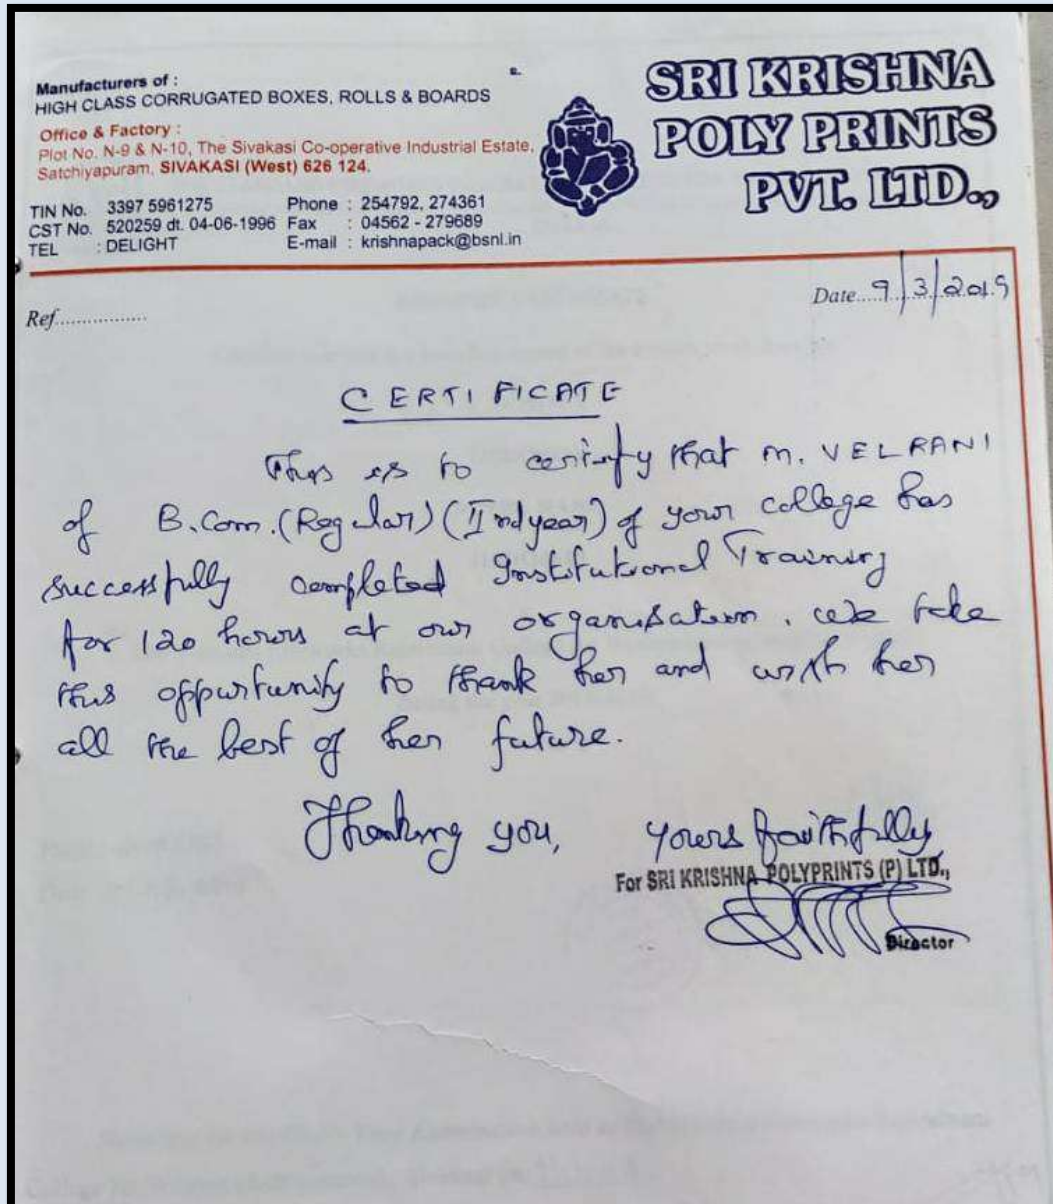 Manufacturers of :
HIGH CLASS CORRUGATED BOXES, ROLLS & BOARDS
Office & Factory :
Plot No. N-9 & N-10, The Sivakasi Co-operative Industrial Estate,
Satchiyapuram, SIVAKASI (West) 626 124.
TIN No. 3397 5961275 Phone : 254792, 274361
CST No. 520259 dt. 04-06-1996 Fax : 04562 - 279689
TEL : DELIGHT E-mail : krishnapack@bsnl.in
SRI KRISHNA
POLY PRINTS
PVT. LTD.,
Ref.................
Date 9/3/2019
CERTIFICATE
This is to certify that M. VELRANI
of B.Com. (Regular) (IInd year) of your college has
successfully completed Institutional Training
for 120 hours at our organisation. We take
this opportunity to thank her and wish her
all the best of her future.
Thanking you, yours faithfully,
For SRI KRISHNA POLYPRINTS (P) LTD.,
Director